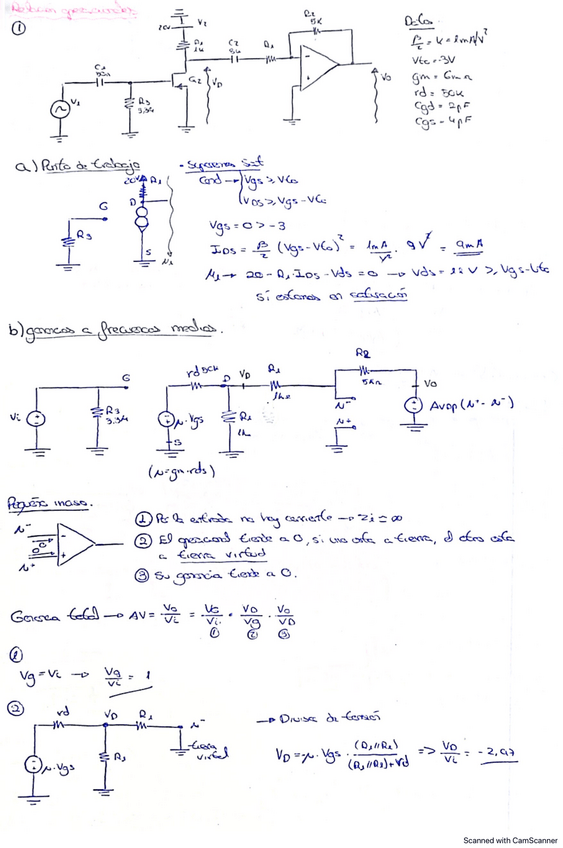 Problemas
①
20V
V2
R1
1k
C2
R1
R2
5k
C1
R3
G2
VD
Vi
Vo
Datos
β/2 = k = 1mA/V²
Vto = -3V
gm = 6mΩ
rd = 50k
Cgd = 2pF
Cgs = 4pF
a) Punto de trabajo
- Suponemos Sat
Cond → Vgs ≥ Vto
VDS ≥ Vgs - Vto
Vgs = 0 > -3
IDS = β/2 (Vgs - Vto)² = 1mA/V² · 9V² = 9mA
20 - R1 · IDS - Vds = 0 → Vds = 11V ≥ Vgs - Vto
Sí estamos en saturación
20V
R1
D
G
R3
S
b) ganancias a frecuencias medias.
G
Vi
R3
3,3k
rd 50k
D
VD
R1
1k
R2
5kΩ
Vo
μ·Vgs
S
R1
1k
v-
v+
Avop (v+ - v-)
(μ = gm·rds)
v-
v+
① Por la entrada no hay corriente → Zi = ∞
② El potencial tiende a 0, si uno está a tierra, el otro está
a tierra virtual
③ Su ganancia tiende a 0.
Ganancia total → AV = Vo/Vi = VG/Vi · VD/Vg · Vo/VD
① ② ③
①
Vg = Vi → Vg/Vi = 1
②
rd
VD
R1
v-
tierra
virtual
μ·Vgs
R1
→ Divisor de tensión
VD = -μ·Vgs · (R1//R1)/((R1//R1)+rd) => VD/Vi = -2,97
Scanned with CamScanner